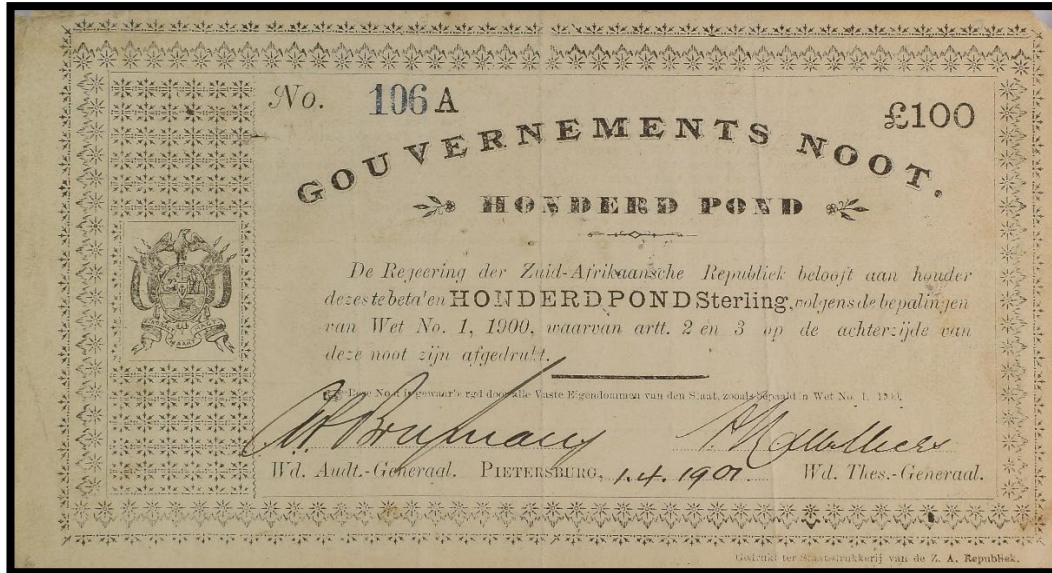 No. 106 A £100
GOUVERNEMENTS NOOT.
HONDERD POND
De Regeering der Zuid-Afrikaansche Republiek belooft aan houder
dezes te beta'en HONDERD POND Sterling, volgens de bepalingen
van Wet No. 1, 1900, waarvan artt. 2 en 3 op de achterzijde van
deze noot zijn afgedrukt.
Deze Noot is gewaar'orgd door alle Vaste Eigendommen van den Staat, zooals bepaald in Wet No. 1, 1900.
Wd. Audt.-Generaal. PIETERSBURG, 1.4.1901 Wd. Thes.-Generaal.
Gedrukt ter Staatsdrukkerij van de Z. A. Republiek.